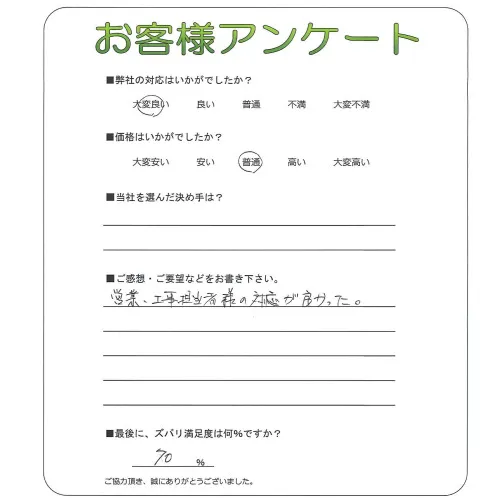 お客様アンケート
■弊社の対応はいかがでしたか？
大変良い 良い 普通 不満 大変不満
■価格はいかがでしたか？
大変安い 安い 普通 高い 大変高い
■当社を選んだ決め手は？
■ご感想・ご要望などをお書き下さい。
営業、工事担当者様の対応が良かった。
■最後に、ズバリ満足度は何%ですか？
70 %
ご協力頂き、誠にありがとうございました。